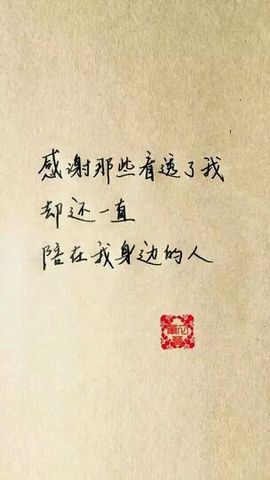 感谢那些看透了我
却还一直
陪在我身边的人